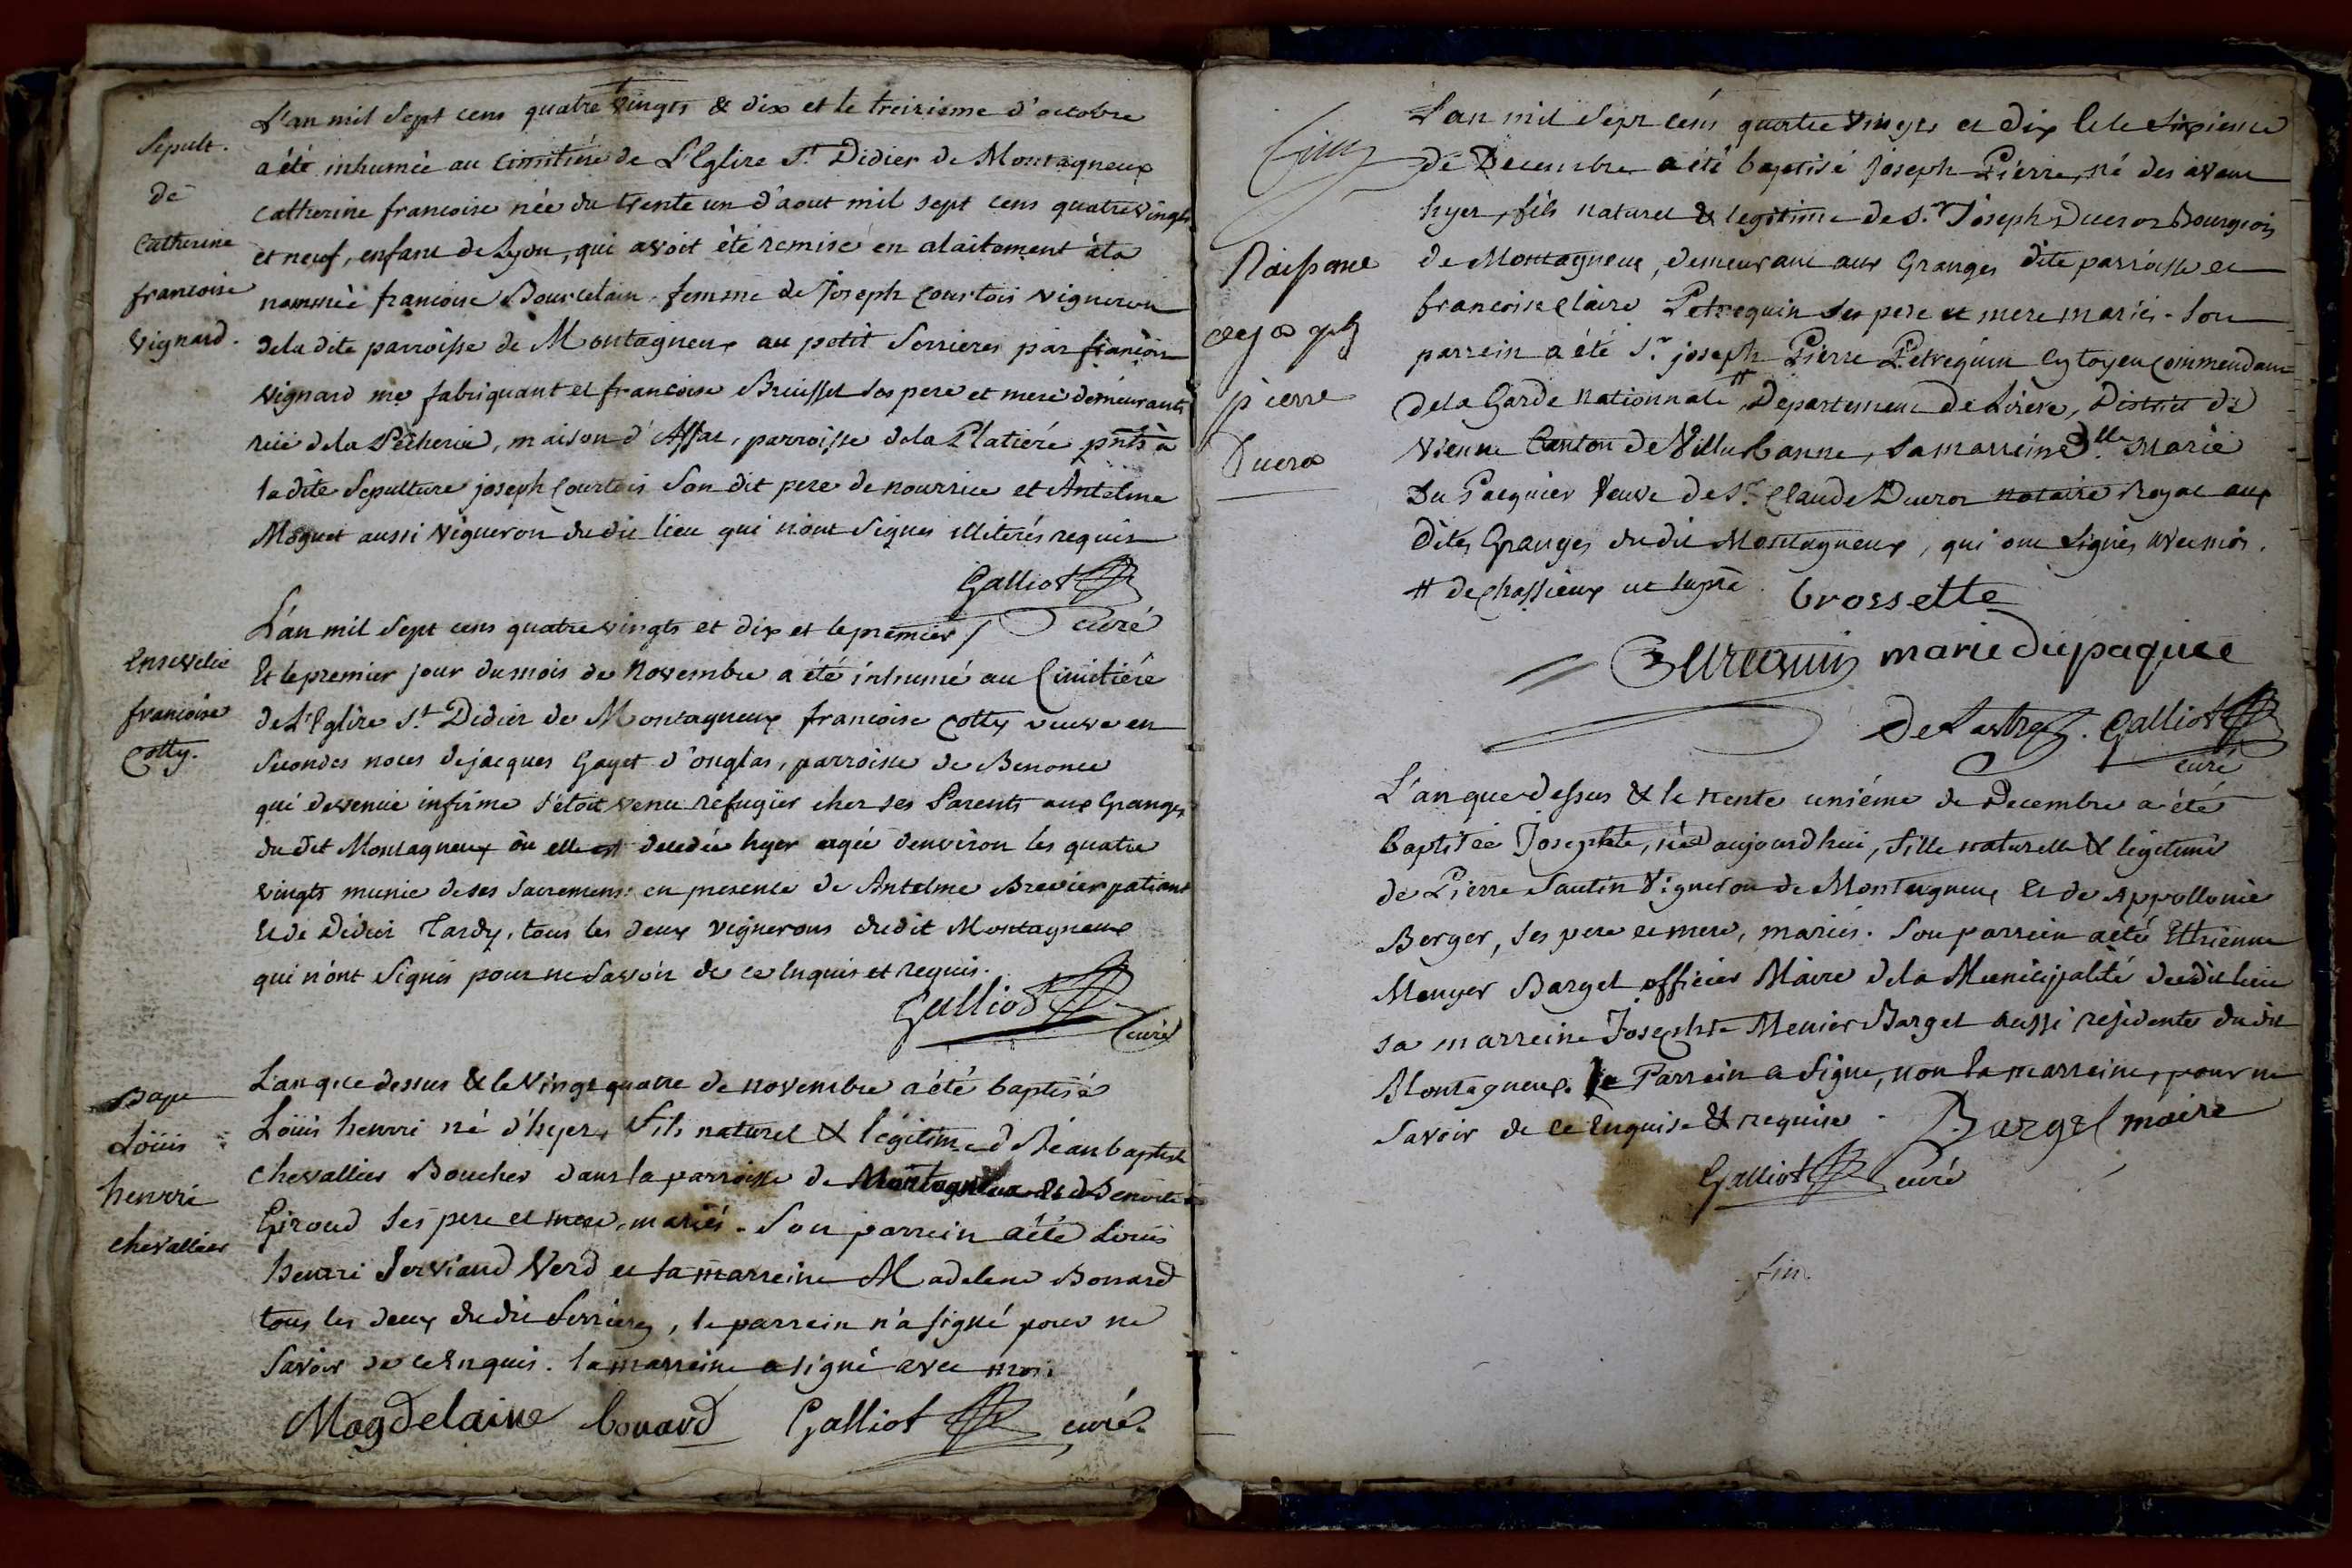 Sepult.
de
Catherine
francoise
Vignard.
L'an mil Sept cens quatre vingts & dix et le treizieme d'octobre
a été inhumée au Cimitiére de L'Eglise St Didier de Montagneux
Catherine francoise née du trente un d'aout mil sept cens quatre vingts
et neuf, enfant de Lyon, qui avoit été remise en alaitement à la
nommée francoise Bourcelain femme de Joseph Courtois vigneron
de la dite parroisse de Montagneux au petit Serrieres par françois
Vignard me fabriquant et francoise Bruisset ses pere et mere demeurants
ruë de la Pêcherie, maison d'Assac, parroisse de la Platiére pnts à
la dite Sepulture joseph Courtois Son dit pere de nourrice et Antelme
Moguet aussi vigneron du dit lieu qui n'ont Signes illiterés requis
Galliot
curé
Ensevelie
francoise
Cotty.
L'an mil Sept cens quatre vingts et dix et le premier /
Et le premier jour du mois de Novembre a été inhumé au Cimitiére
de L'Eglise St Didier de Montagneux francoise Cotty veuve en
Secondes noces de jacques Gayet d'onglas, parroisse de Benonce
qui devenue infirme s'étoit venu réfugier cher ses Parents aux Granges
du dit Montagneux où elle est decedée hyer agée d'environ les quatre
vingts munie de ses Sacremens: en presence de Antelme Brevier patient
Et de Didier Tardy, tous les deux vignerons du dit Montagneux
qui n'ont Signés pour ne Savoir de ce Enquis et requis.
Galliot
Curé
Bapt
Loüis
henrri
chevallier
L'an que dessus & le Vingt quatre de novembre a été baptisé
Loüis henrri né d'hyer, Fils naturel & légitime de Jéan baptiste
Chevallier Boucher dans la parroisse de Montagneux et de Benoite
Giroud Ses pere et mere, mariés. Son parrein a été Loüis
henrri Serviand Verd et sa marreine Madelene Bonard
tous les deux du dit Serrieres, le parrein n'a signé pour ne
Savoir de ce Enquis. la marreine a signé avec moi.
Magdelaine bonard Galliot curé.
Naissance
de joseph
pierre
Ducros
L'an mil Sept céns quatre vingts et dix & le Sixieme
de Decembre a été baptisé Joseph Piérre, né des avant
hyer, fils naturel & legitime de Sr Joseph Ducros Bourgeois
de Montagneux, demeurant aux Granges dite parroisse et
francoise Claire Petrequin ses pere et mere mariés. Son
parrein a été Sr joseph Pierre Petrequin Cytoyen Commendant
de la Garde Nationnale # Departement de Lisere, District de
Vienne Canton de Villurbanne, sa marreine Dlle Marie
Du Pacquier Veuve de Sr Claude Ducros notaire Royal aux
dites Granges du dit Montagneux, qui ont Signés avec moi.
# de chassieux ut suprà
brossette
Petrequin marie du paquiee
De Lastre. Galliot
curé
L'an que dessus & le trente uniéme de Decembre a été
baptisée Josephte, née aujourd'hui, fille naturelle & légitime
de Pierre Sautin Vigneron de Montagneux Et de Appollonie
Berger, ses pere et mere, mariés. Son parrein a été Etiénne
Meuyer Barget officier Maire de la Municipalité du dit lieu
sa marreine Josephte Meuier Barget aussi residente du dit
Montagneux. le Parrein a Signé, non la marreine, pour ne
Savoir de ce Enquise & requise. Barget maire
Galliot Curé
fin.